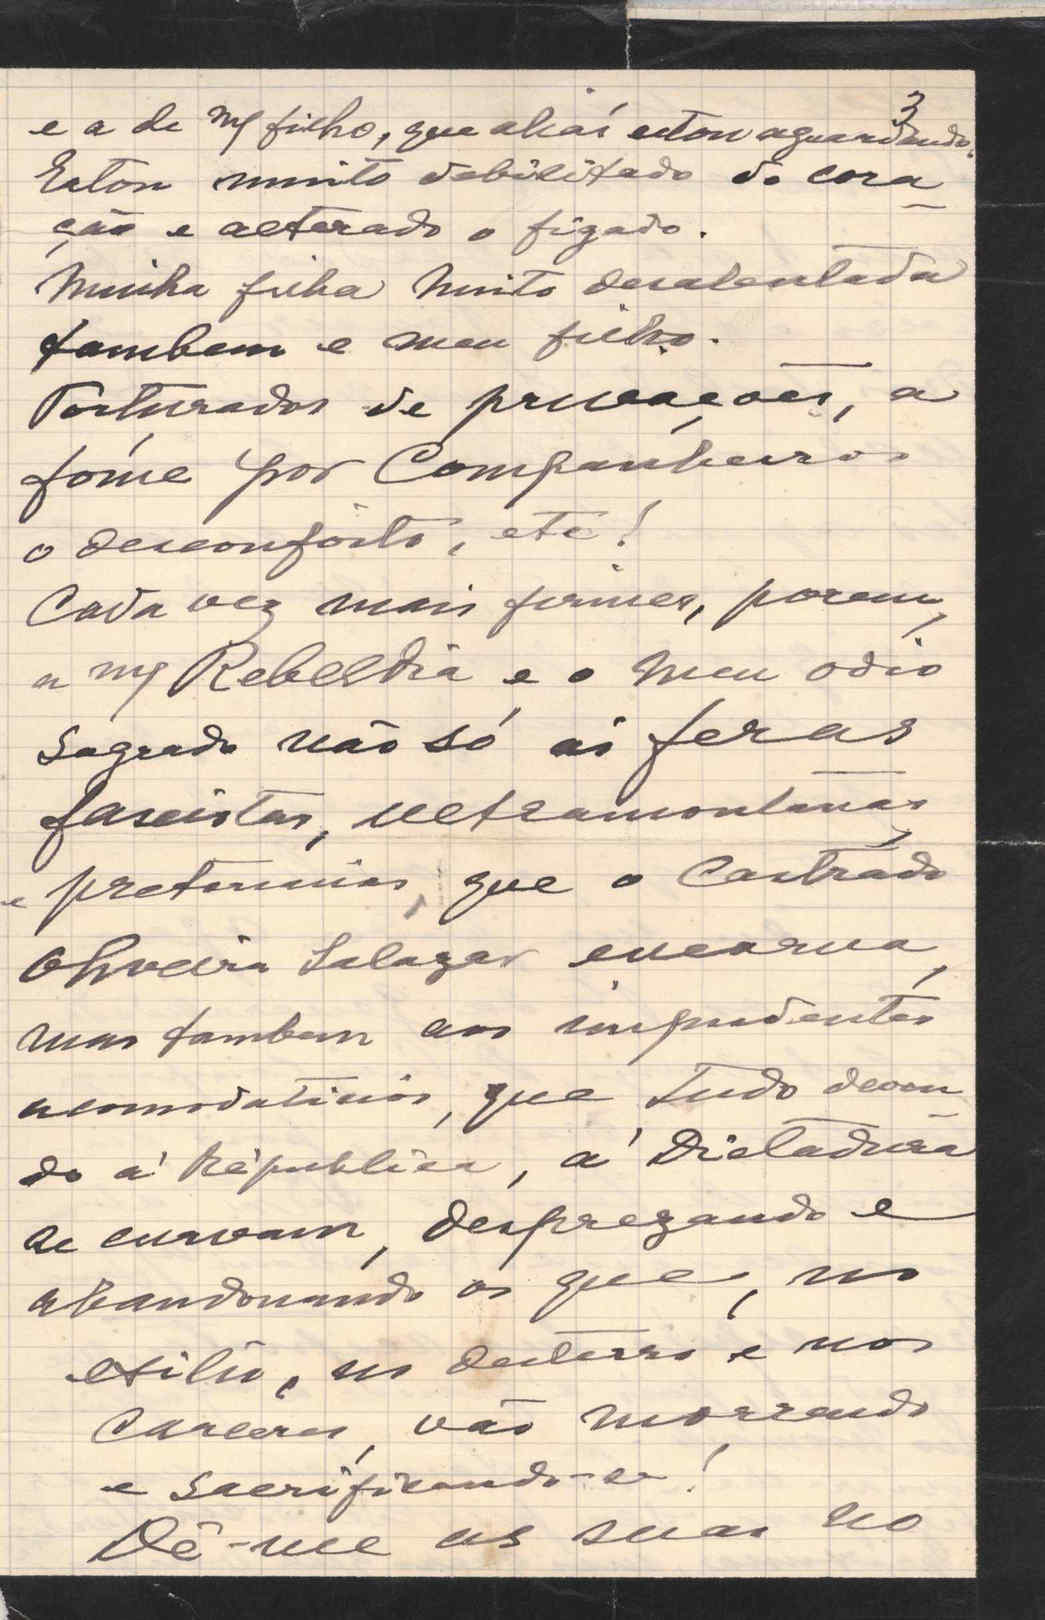 3
e a de mª filho, que aliás estou aguardando.
Estou muito debilitado do cora
ção e alterado o figado.
Minha filha muito desalentada
tambem e meu filho.
Torturados de privações, a
fome por Companheiros
o desconfôrto, etc!
Cada vez mais firmes, porem,
a mª Rebeldia e o meu odio
sagrado não só ás feras
fascistas, ultramontanas
e pretorianas, que o Castrado
Oliveira Salazar encarna,
mas tambem aos impudentes
acomodaticios, que tudo deven
do á Républica, á Dictadura
se curvam, desprezando e
abandonando os que, no
exilio, no desterro e nos
carceres, vão morrendo
e sacrificando-se!
Dê-me as suas no